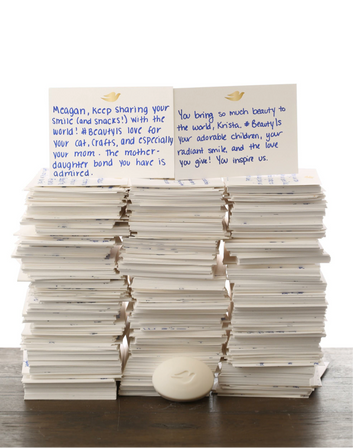 Meagan, keep sharing your
smile (and snacks!) with the
world! #BeautyIs love for
your cat, crafts, and especially
your mom. The mother-
daughter bond you have is
admired.
You bring so much beauty to
the world, Krista. #BeautyIs
your adorable children, your
radiant smile, and the love
you give! You inspire us.